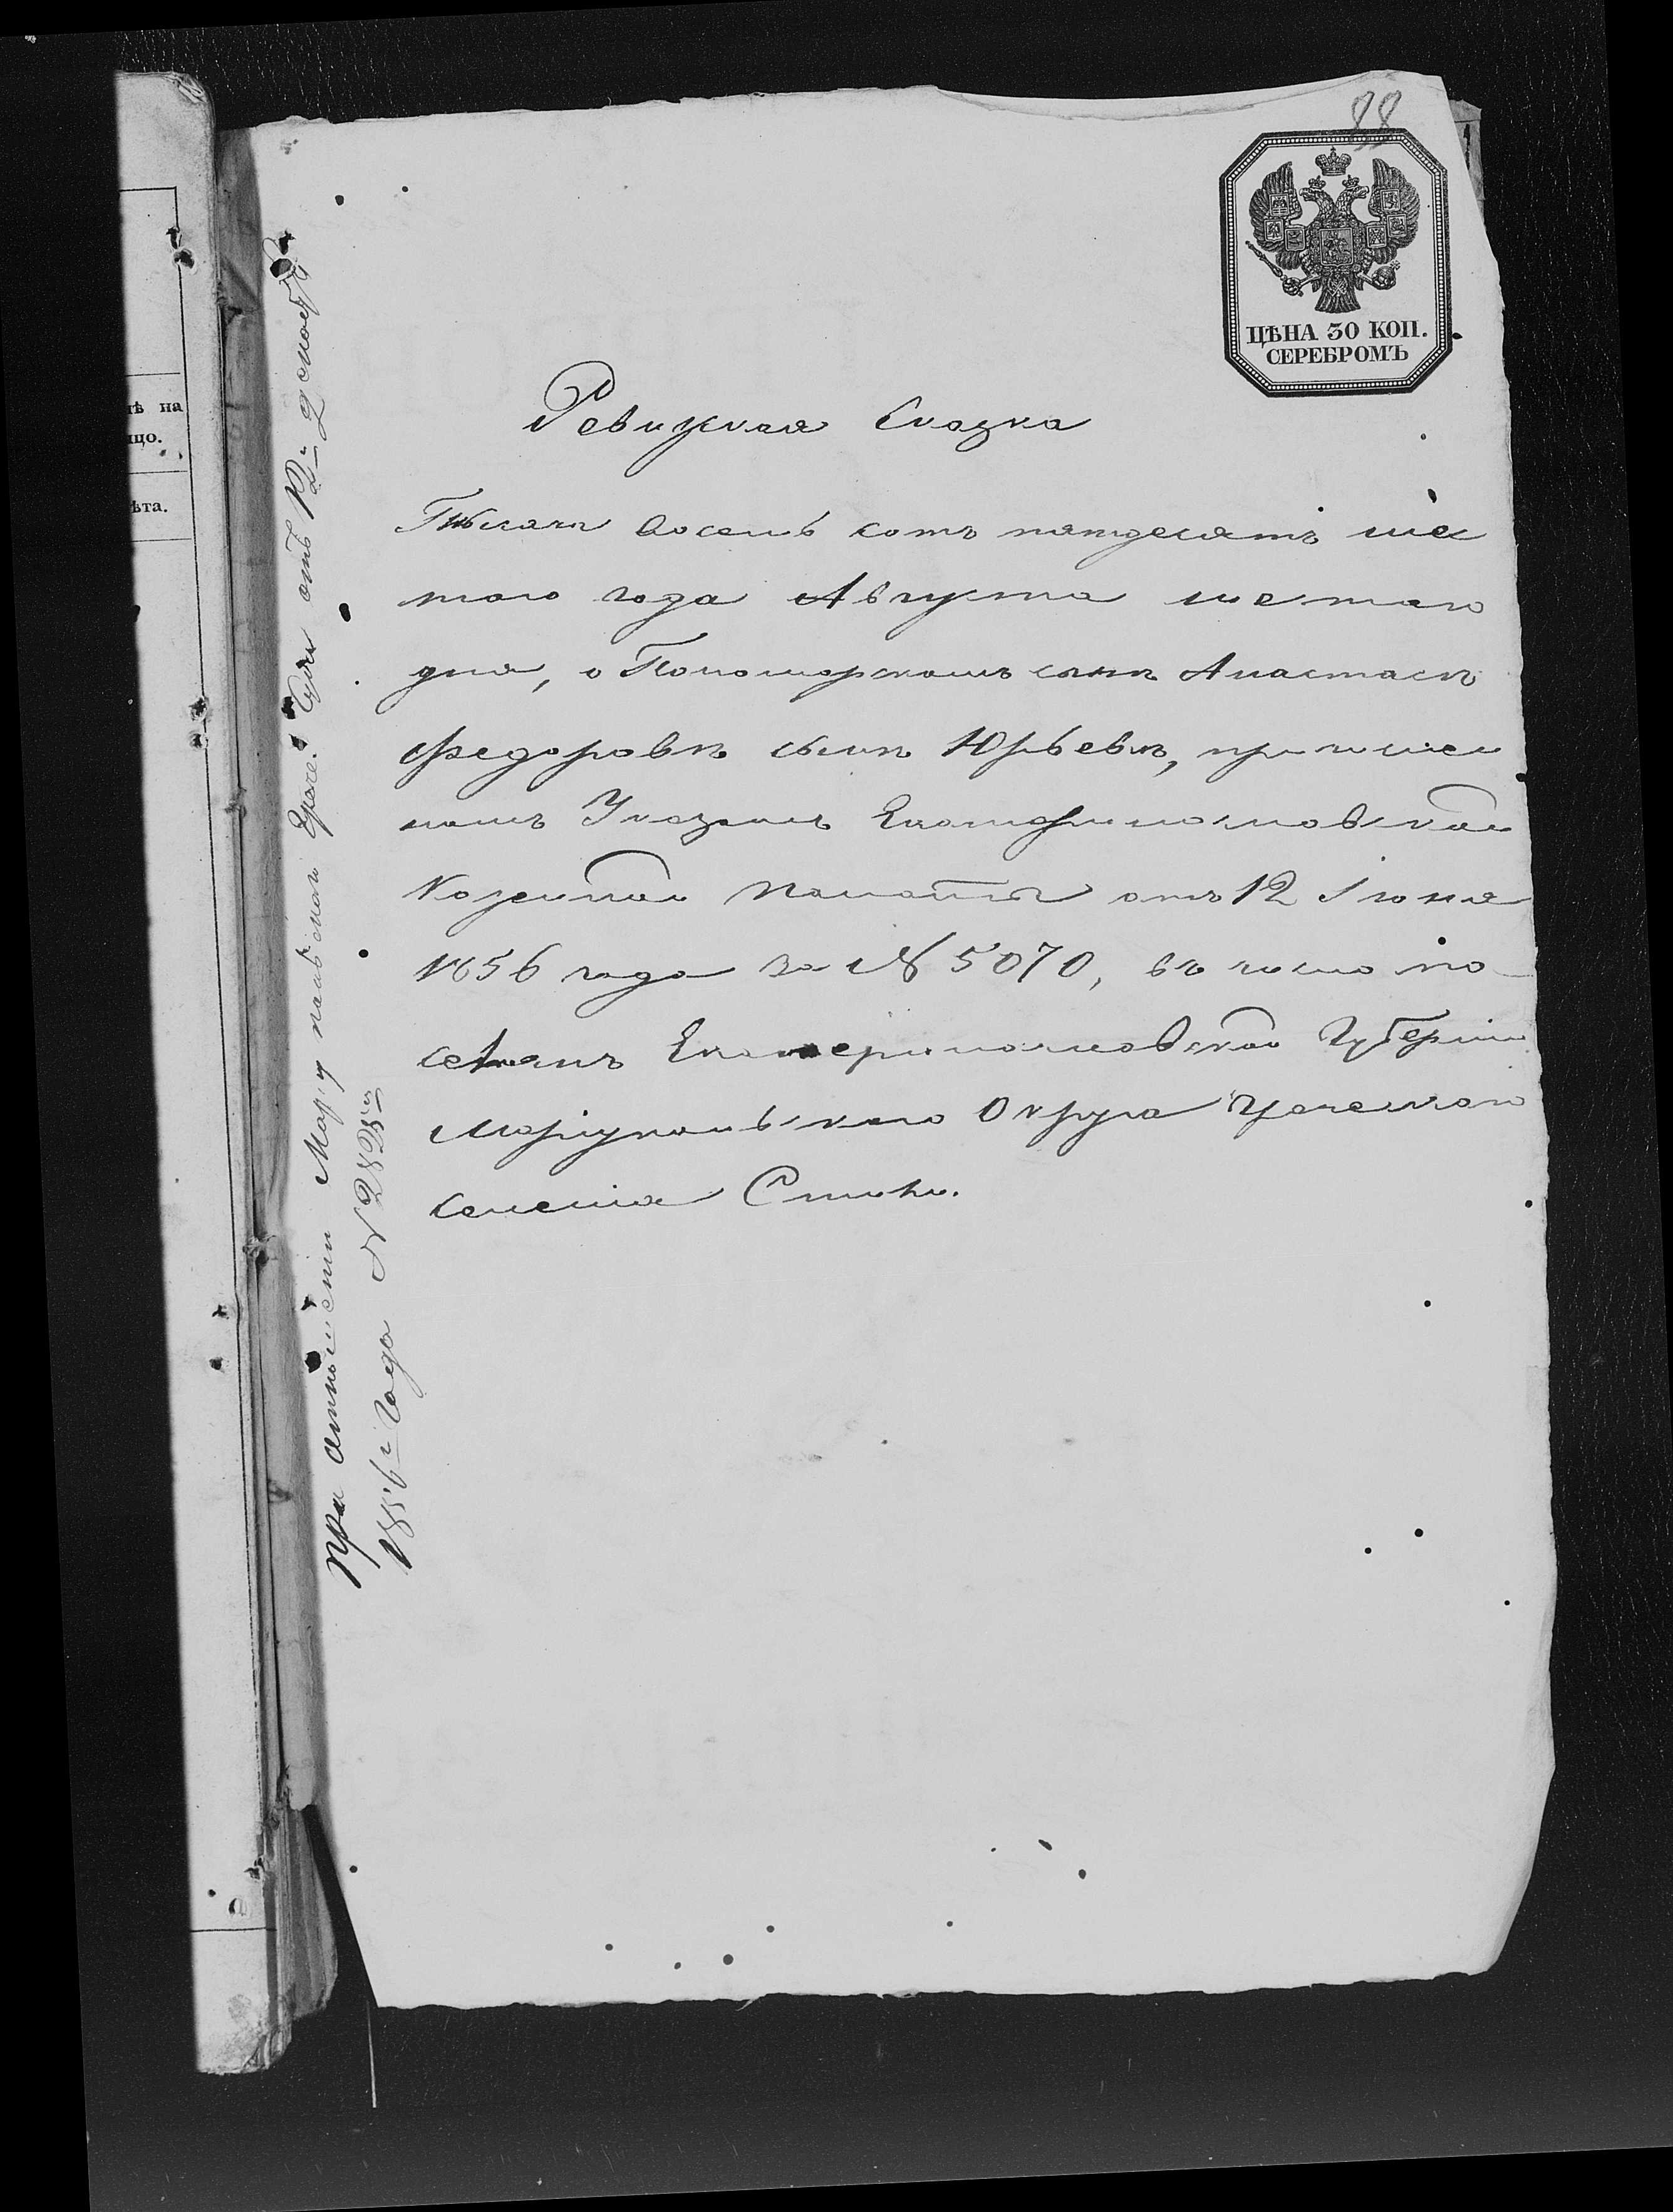 88
ЦѢНА 30 КОП.
СЕРЕБРОМЪ
Ревизская Сказка
Тысяча восемь сотъ пятдесятъ шес
таго года Августа шестаго
дня, о Пономарскомъ сынѣ Анастасѣ
Федоровѣ сынѣ Юрьевѣ, причислен
номъ Указомъ Екатеринославской
Казенной Палаты отъ 12 Іюня
1856 года за № 5070, въ число по
селянъ Екатеринославской Губерніи
Маріупольскаго Округа Греческаго
селенія Стыли.
при отношеніи Маріупольскаго Грече. Суда отъ
1856 г. Года № 2825
ѣ на
цо.
ѣта.